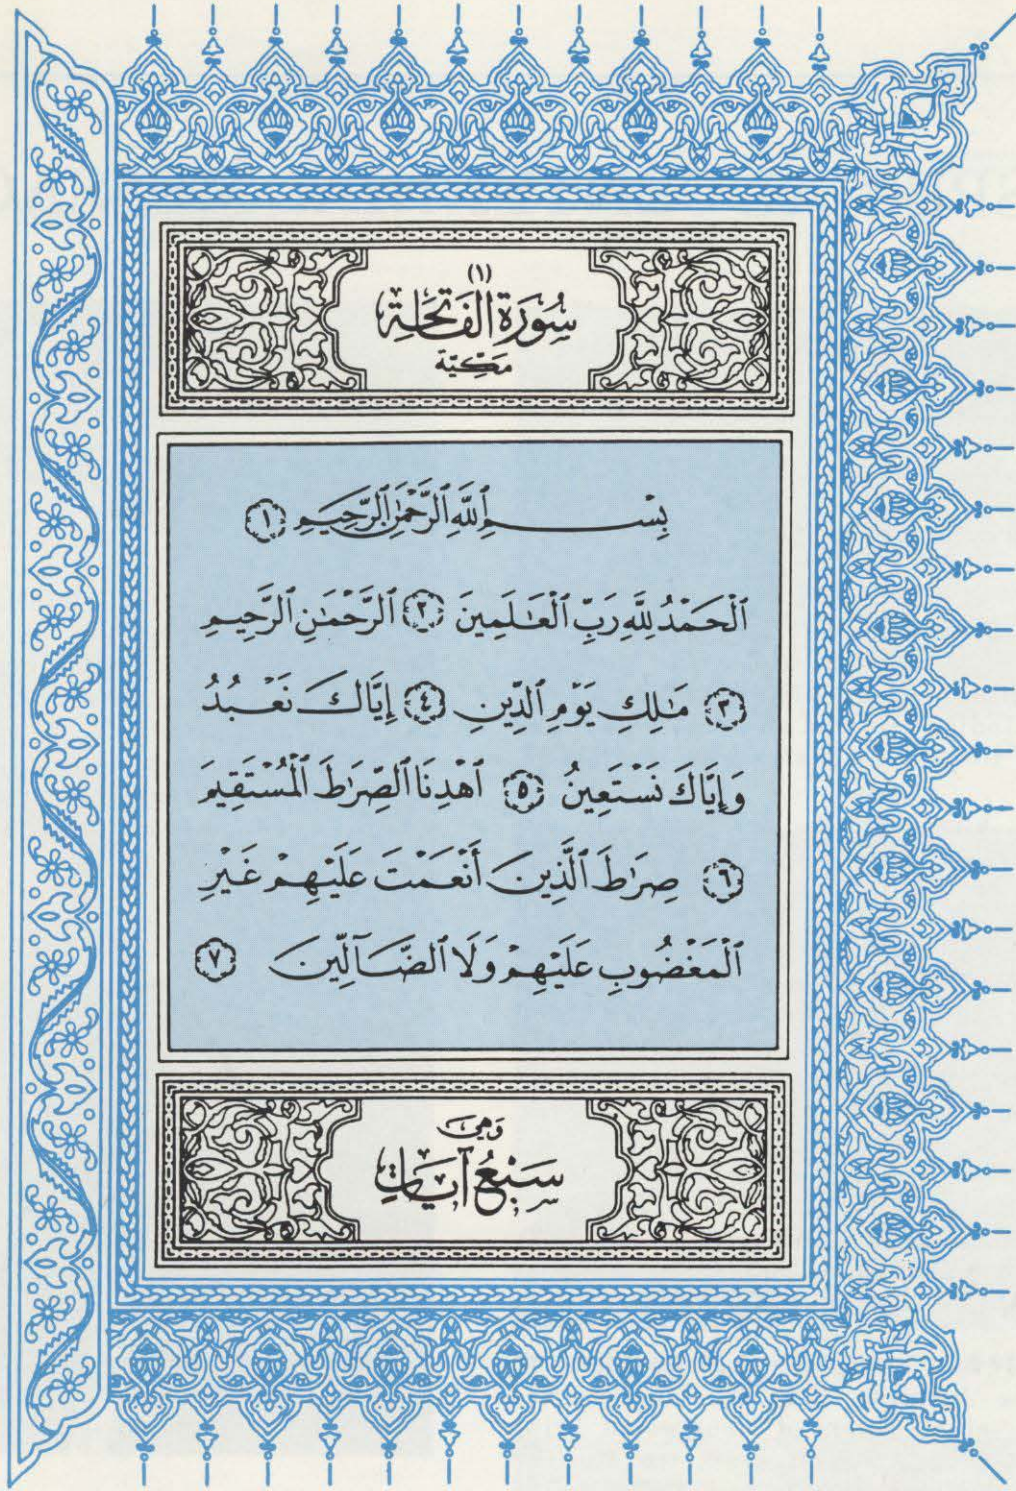 (١)
سُورَةُ الفَاتِحَةِ
مَكِّيَّة
بِسْمِ ٱللَّهِ ٱلرَّحْمَٰنِ ٱلرَّحِيمِ ١
ٱلْحَمْدُ لِلَّهِ رَبِّ ٱلْعَٰلَمِينَ ٢ ٱلرَّحْمَٰنِ ٱلرَّحِيمِ
٣ مَٰلِكِ يَوْمِ ٱلدِّينِ ٤ إِيَّاكَ نَعْبُدُ
وَإِيَّاكَ نَسْتَعِينُ ٥ ٱهْدِنَا ٱلصِّرَٰطَ ٱلْمُسْتَقِيمَ
٦ صِرَٰطَ ٱلَّذِينَ أَنْعَمْتَ عَلَيْهِمْ غَيْرِ
ٱلْمَغْضُوبِ عَلَيْهِمْ وَلَا ٱلضَّآلِّينَ ٧
وَهِيَ
سَبْعُ آيَاتٍ